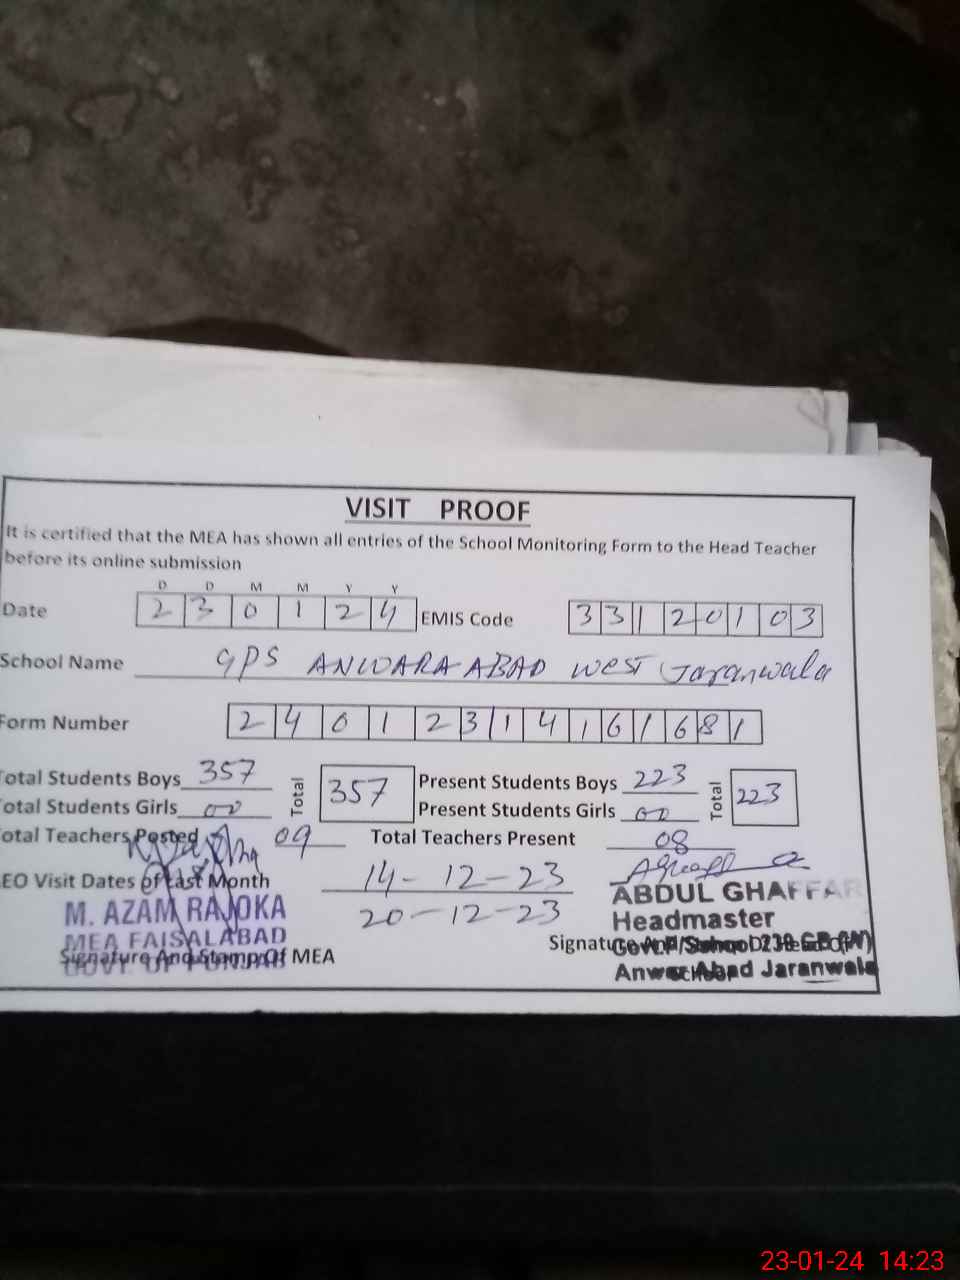 VISIT PROOF
It is certified that the MEA has shown all entries of the School Monitoring Form to the Head Teacher
before its online submission
D D M M Y Y
Date 2 3 0 1 2 4 EMIS Code 3 3 1 2 0 1 0 3
School Name GPS ANWARA ABAD West Jaranwala
Form Number 2 4 0 1 2 3 1 4 1 6 1 6 8 1
Total Students Boys 357 Total 357 Present Students Boys 223 Total 223
Total Students Girls 00 Present Students Girls 00
Total Teachers Posted 09 Total Teachers Present 08
AEO Visit Dates of Last Month 14-12-23
20-12-23
M. AZAM RAJOKA
MEA FAISALABAD
GOVT. OF PUNJAB
Signature And Stamp Of MEA
ABDUL GHAFFAR
Headmaster
Signature And Stamp Of Head
Govt. P/School 239 GB (W)
School
Anwar Abad Jaranwala
23-01-24 14:23